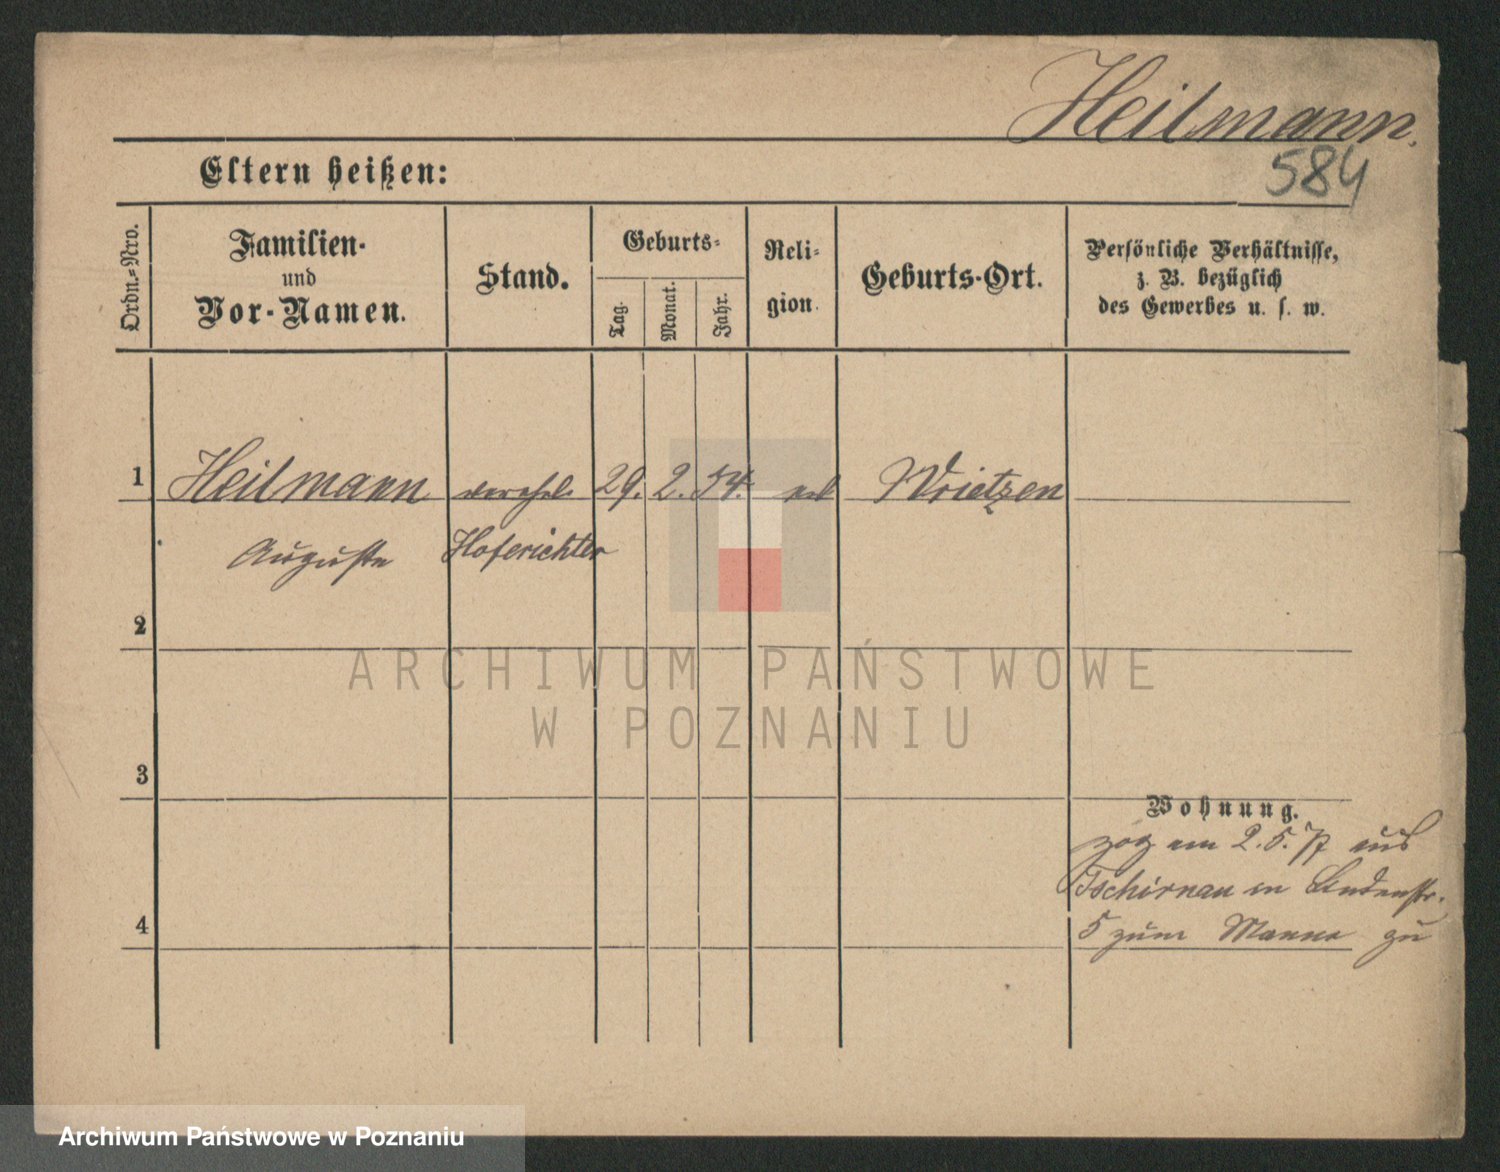 Heilmann.
584
Eltern heißen:
Ordn.-Nro.
Familien-
und
Vor-Namen.
Stand.
Geburts-
Tag.
Monat.
Jahr.
Reli-
gion.
Geburts-Ort.
Persönliche Verhältnisse,
z. B. bezüglich
des Gewerbes u. s. w.
1 Heilmann verehel. 29. 2. 54. Wrietzen
Auguste Hoferichter
2
3
4
Wohnung.
zog am 2. 5. 77 aus
Tschirnau in Lindenstr.
5 zum Manne zu
ARCHIWUM PAŃSTWOWE
W POZNANIU
Archiwum Państwowe w Poznaniu